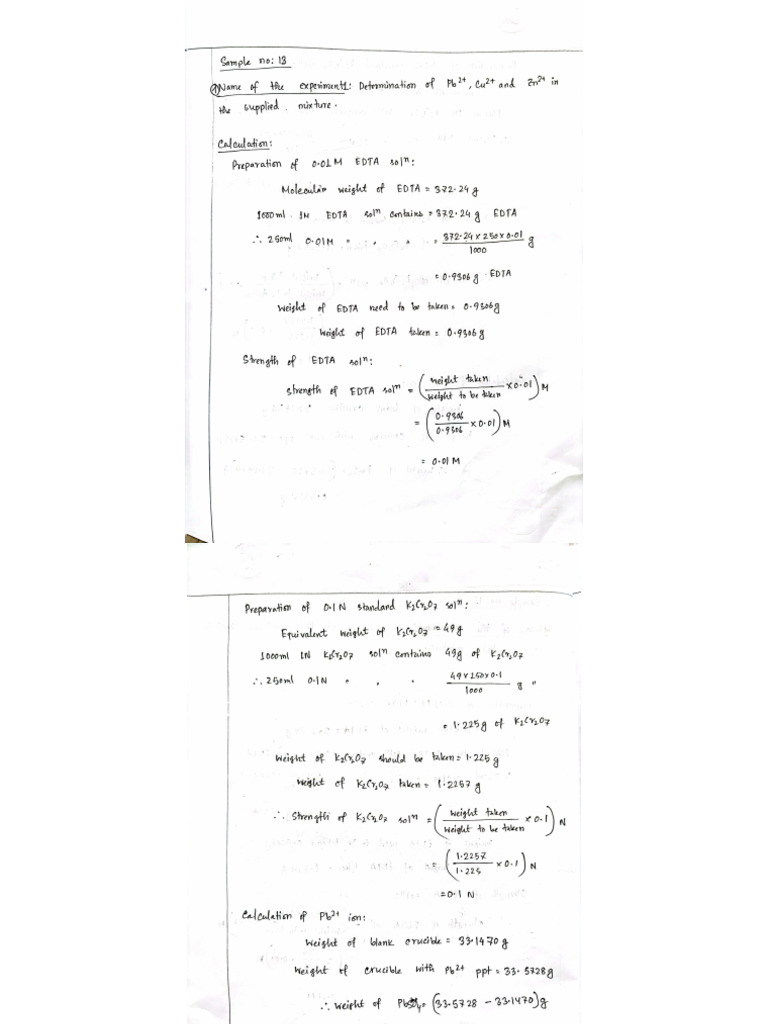 Sample no: 13
Name of the experiment1: Determination of Pb²⁺, Cu²⁺ and Zn²⁺ in
the supplied mixture.
Calculation:
Preparation of 0.01M EDTA solⁿ:
Molecular weight of EDTA = 372.24 g
1000ml 1M EDTA solⁿ contains = 372.24 g EDTA
∴ 250ml 0.01M " " " = 372.24 x 250 x 0.01 / 1000 g
= 0.9306 g EDTA
Weight of EDTA need to be taken = 0.9306g
Weight of EDTA taken = 0.9306g
Strength of EDTA solⁿ:
Strength of EDTA solⁿ = (weight taken / weight to be taken x 0.01) M
= (0.9306 / 0.9306 x 0.01) M
= 0.01 M
Preparation of 0.1 N standard K₂Cr₂O₇ solⁿ:
Equivalent weight of K₂Cr₂O₇ = 49 g
1000ml 1N K₂Cr₂O₇ solⁿ contains 49g of K₂Cr₂O₇
∴ 250ml 0.1N " " " 49 x 250 x 0.1 / 1000 g "
= 1.225g of K₂Cr₂O₇
Weight of K₂Cr₂O₇ should be taken = 1.225 g
Weight of K₂Cr₂O₇ taken = 1.2257 g
∴ Strength of K₂Cr₂O₇ solⁿ = (Weight taken / Weight to be taken x 0.1) N
= (1.2257 / 1.225 x 0.1) N
= 0.1 N
Calculation of Pb²⁺ ion:
Weight of blank crucible = 33.1470 g
Weight of crucible with Pb²⁺ ppt = 33.5728 g
∴ Weight of PbSO₄ = (33.5728 - 33.1470) g